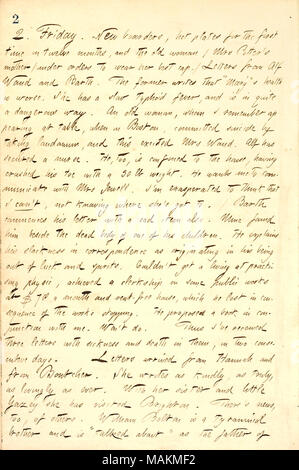 2
2. Friday. New boarders, hot plates for the first
time in twelve months, and the old woman (Mrs Potter's
mother) under orders to wear her best cap. Letters from Alf
Waud and Barth. The former writes that "Mary's" health
is worse. She has a slow typhoid fever and is in quite
a dangerous way. An old woman, whom I remember ap-
pearing at table, when in Boston, committed suicide by
taking laudanum, and this excited Mrs Waud. Alf has
secured a nurse. He, too, is confined to the house, having
crushed his toe with a 30 lb weight. He wants me to com-
municate with Mrs Jewell. I'm exasperated to think that
I can't, not knowing where she's got to. Barth
commences his letter with a sad item also. Mine found
him beside the dead body of one of his children. He explains
his slackness in correspondence as originating in his being
out of luck and spirits. Couldn't get a living at practi-
sing physic, achieved a clerkship in some public works
at $70 a month and rent-free house, which he lost in con-
sequence of the works stopping. He proposed a book in con-
junction with me. Won't do. Thus I've received
three letters with sickness and death in them, in two conse-
cutive days. Letters arrived from Hannah and
from Boutcher. She writes as kindly, as truly,
as lovingly as ever. With her sister and little
she has visited Brighton. There's news,
too, of others. William Bolton is a
brother and is "talked about" as the father of
alamy
Image ID: MAKMF2
www.alamy.com